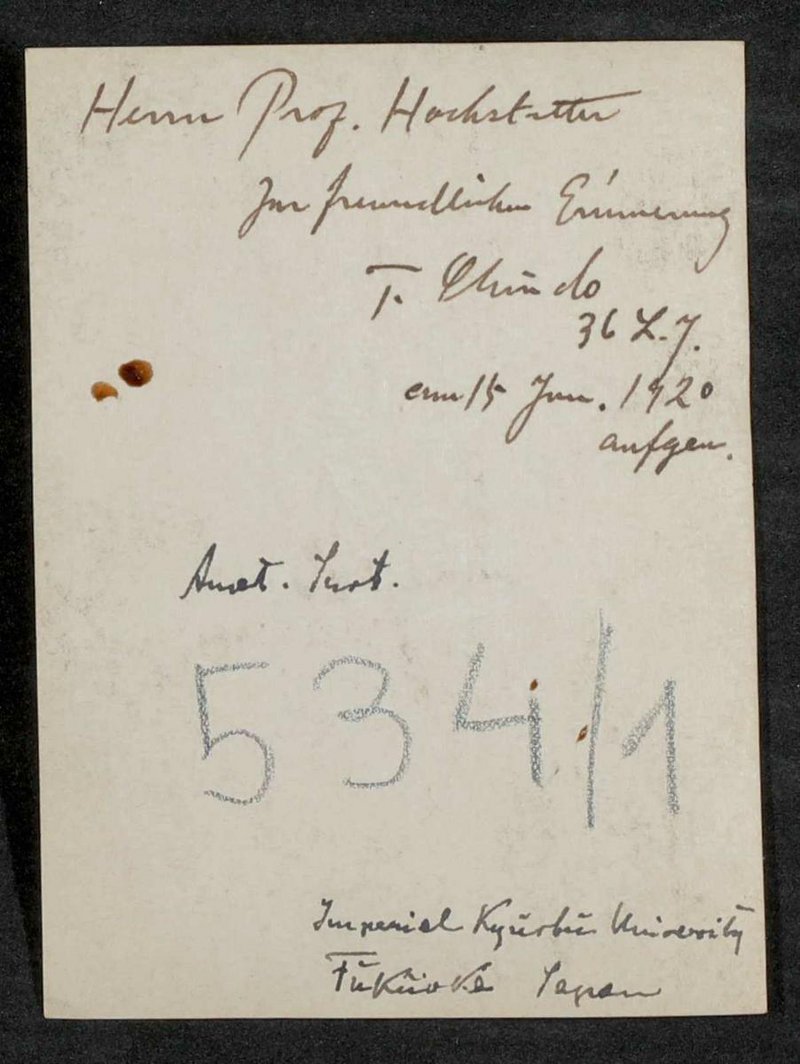 Herrn Prof. Hochstetter
Zur freundlichen Erinnerung
T. Shindo
36 L.J.
am 15 Jan. 1920
aufgen.
Anat. Inst.
534/1
Imperial Kyūshū University
Fūkūoka Japan